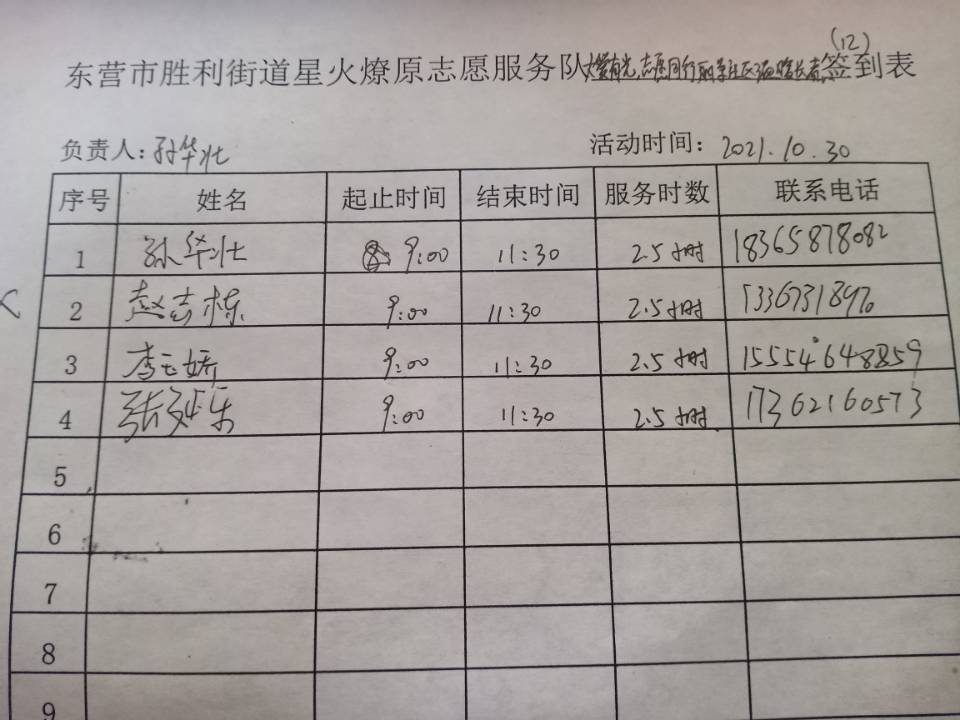 (12)
东营市胜利街道星火燎原志愿服务队 有光,志愿同行 社区 签到表
负责人:孙华壮 活动时间:2021.10.30
序号 姓名 起止时间 结束时间 服务时数 联系电话
1 孙华壮 9:00 11:30 2.5小时 18365878082
2 赵志栋 9:00 11:30 2.5小时 13367318970
3 李玉娇 9:00 11:30 2.5小时 15554648859
4 张 乐 9:00 11:30 2.5小时 17362160573
5
6
7
8
9